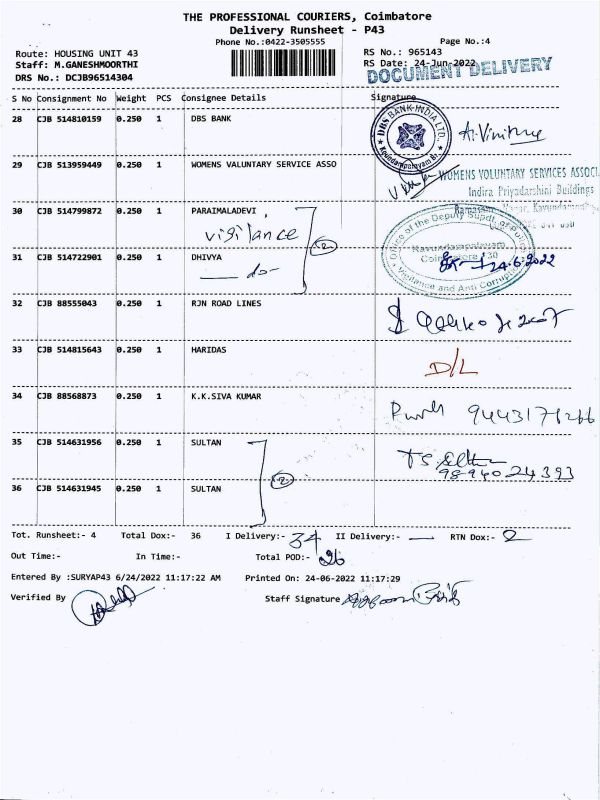 THE PROFESSIONAL COURIERS, Coimbatore
Delivery Runsheet - P43
Phone No.:0422-3505555
Page No.:4
Route: HOUSING UNIT 43
RS No.: 965143
Staff: M.GANESHMOORTHI
RS Date: 24-Jun-2022
DRS No.: DCJB96514304
DOCUMENT DELIVERY
S No Consignment No Weight PCS Consignee Details Signature
28 CJB 514810159 0.250 1 DBS BANK
DBS BANK INDIA LTD.
29 CJB 513959449 0.250 1 WOMENS VOLUNTARY SERVICE ASSO
WOMENS VOLUNTARY SERVICES ASSOCI
Indira Priyadarshini Buildings
30 CJB 514799872 0.250 1 PARAIMALADEVI
vigilance
2
Office of the Deputy Supdt. of Police
Kavundampalayam
Vigilance and Anti Corruption
31 CJB 514722901 0.250 1 DHIVYA
— do —
24.6.2022
32 CJB 88555043 0.250 1 RJN ROAD LINES
33 CJB 514815643 0.250 1 HARIDAS
D/L
34 CJB 88568873 0.250 1 K.K.SIVA KUMAR
35 CJB 514631956 0.250 1 SULTAN
2
36 CJB 514631945 0.250 1 SULTAN
Tot. Runsheet:- 4 Total Dox:- 36 I Delivery:- 34 II Delivery:- — RTN Dox:- 2
Out Time:- In Time:- Total POD:- 26
Entered By :SURYAP43 6/24/2022 11:17:22 AM Printed On: 24-06-2022 11:17:29
Verified By
Staff Signature